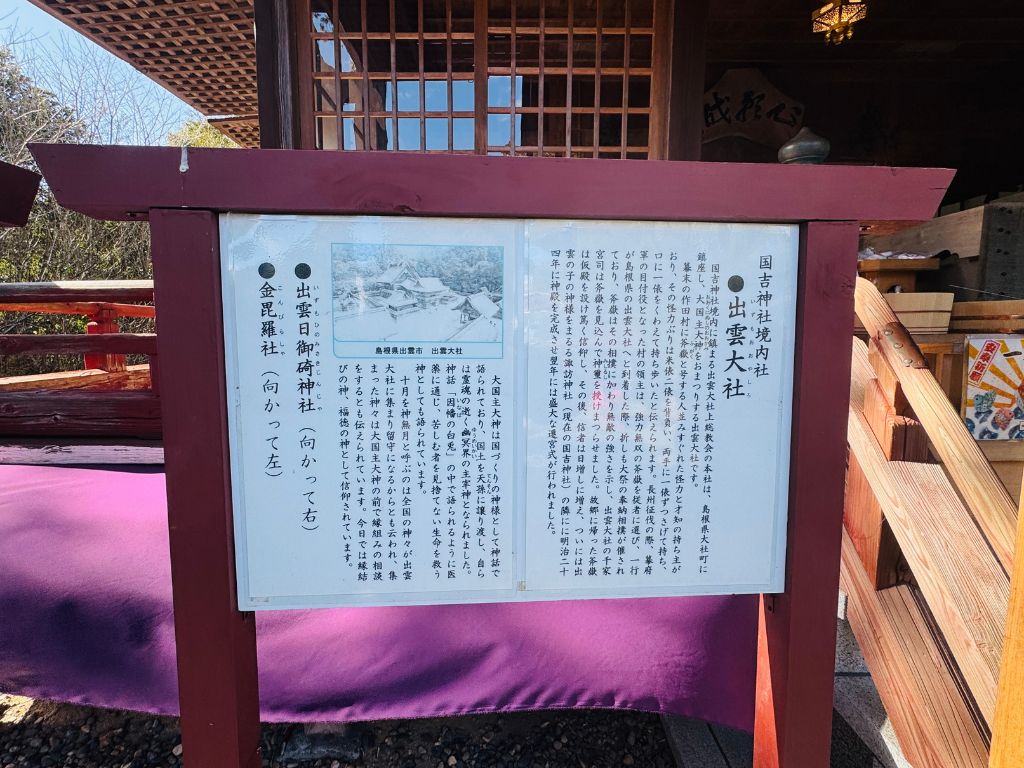 国吉神社境内社
●出雲大社
いずもおおやしろ
国吉神社境内に鎮まる出雲大社上総教会の本社は、島根県大社町に
鎮座し、大国主大神をおまつりする出雲大社です。
幕末の作田村に茶嶽と号する人並みすぐれた怪力と才知の持ち主が
おり、その怪力ぶりは米俵二俵を背負い、両手に一俵ずつさげて持ち、
口に一俵をくわえて持ち歩いたと伝えられます。長州征伐の際、幕府
軍の目付役となった村の領主は、強力無双の茶嶽を従者に選び、一行
が島根県の出雲大社へと到着した際、折しも大祭の奉納相撲が催され
ており、茶嶽はその相撲に加わり無敵の強さを示し、出雲大社の千家
宮司は茶嶽を見込んで神璽を授けまつらせました。故郷に帰った茶嶽
は仮殿を設け篤く信仰し、その後、信者は日増しに増え、ついには出
雲の子の神様をまつる諏訪神社（現在の国吉神社）の隣にに明治二十
四年に神殿を完成させ翌年には盛大な遷宮式が行われました。
島根県出雲市　出雲大社
大国主大神は国づくりの神様として神話で
語られており、国土を天孫に譲り渡し、自ら
は霊魂の道・幽冥界の主宰神となられました。
神話「因幡の白兎」の中で語られるように医
薬に通じ、苦しむ者を見捨てない生命を救う
神としても語られています。
十月を神無月と呼ぶのは全国の神々が出雲
大社に集まり留守になるからとも云われ、集
まった神々は大国主大神の前で縁組みの相談
をするとも伝えられています。今日では縁結
びの神、福徳の神として信仰されています。
●出雲日御碕神社（向かって右）
いずもひのみさきじんじゃ
●金毘羅社（向かって左）
こんぴらしゃ